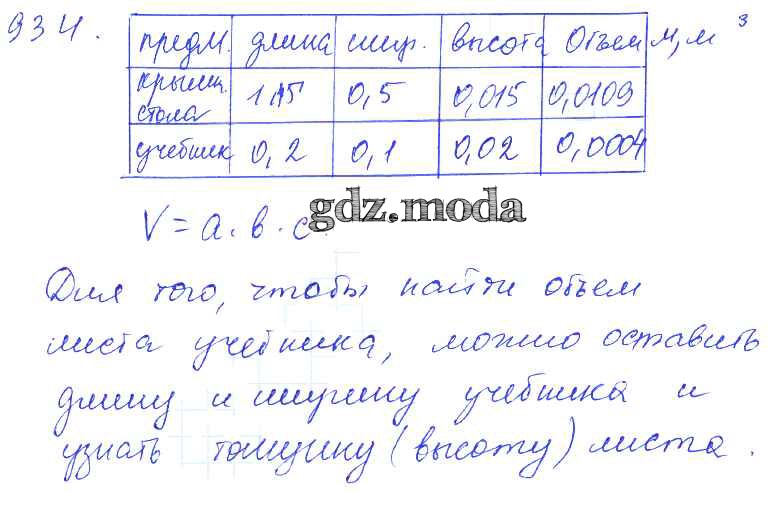 934.
предм. длина шир. высота Объем м, м³
крышк. стола 1,15 0,5 0,015 0,0109
учебник 0,2 0,1 0,02 0,0004
V = a · b · c.
gdz.moda
Для того, чтобы найти объем
листа учебника, можно оставить
длину и ширину учебника и
узнать толщину (высоту) листа.